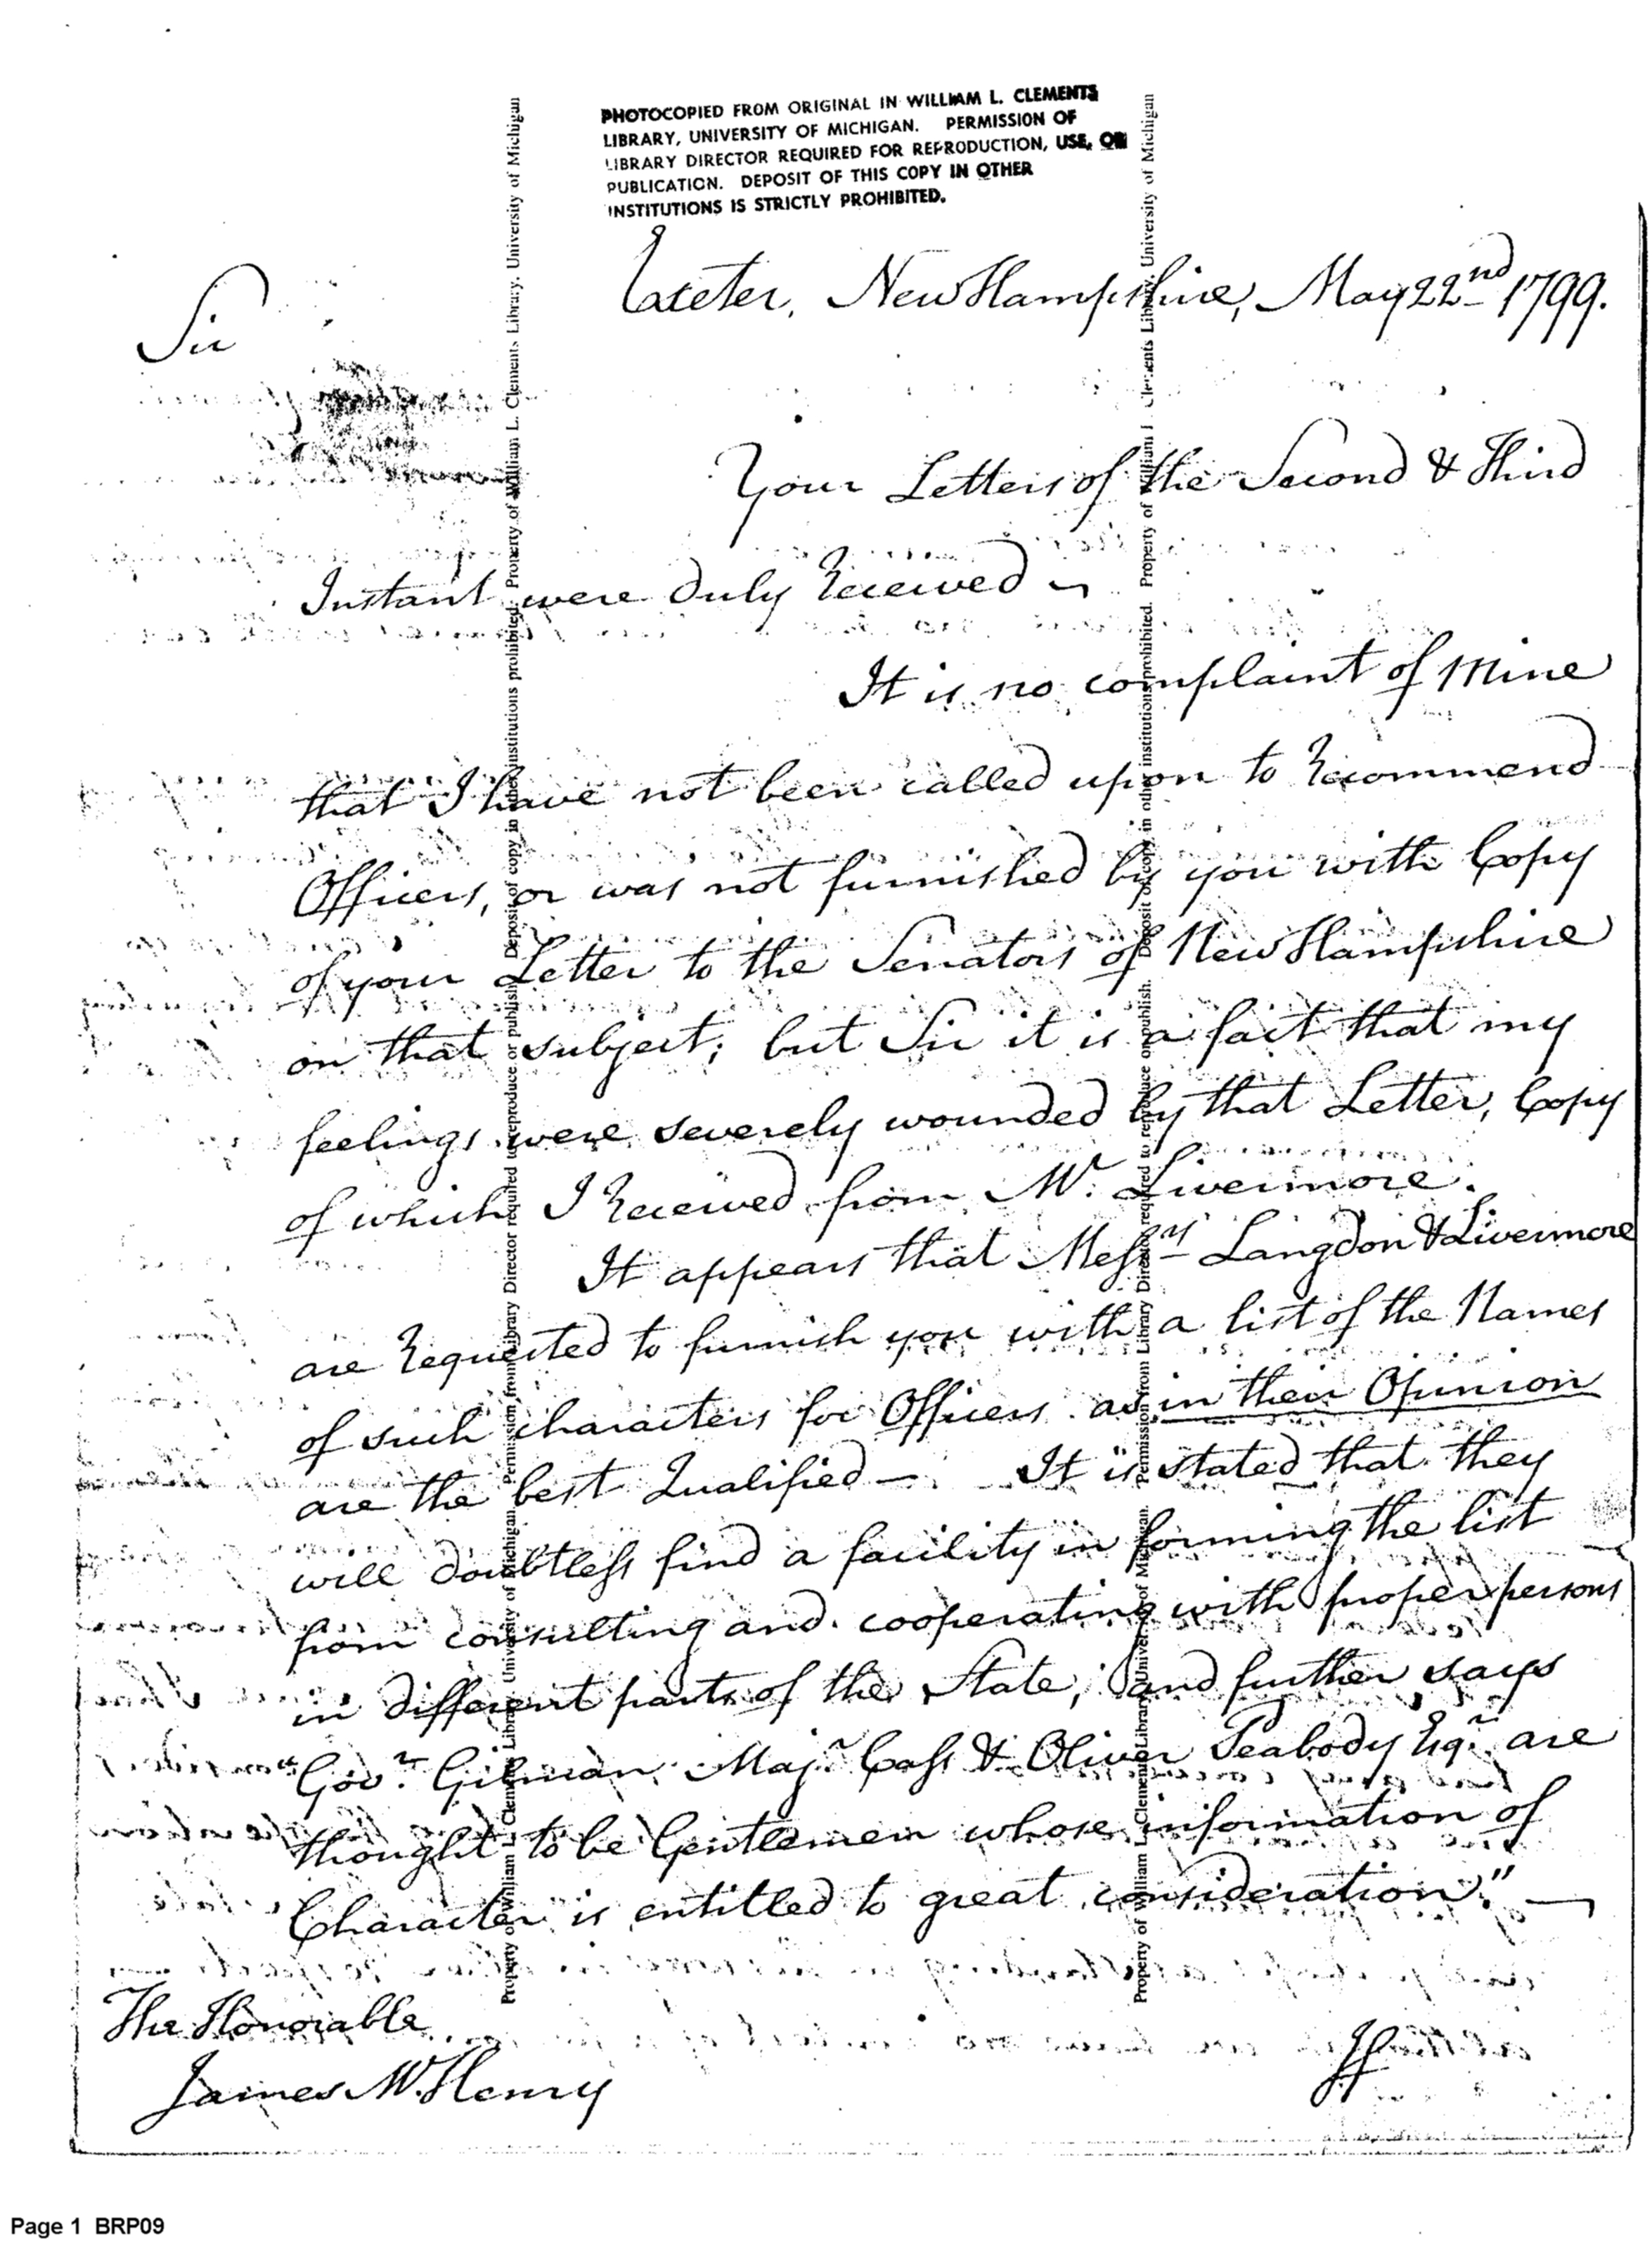 PHOTOCOPIED FROM ORIGINAL IN WILLIAM L. CLEMENTS
LIBRARY, UNIVERSITY OF MICHIGAN. PERMISSION OF
LIBRARY DIRECTOR REQUIRED FOR REPRODUCTION, USE, OR
PUBLICATION. DEPOSIT OF THIS COPY IN OTHER
INSTITUTIONS IS STRICTLY PROHIBITED.
Exeter, New Hampshire, May 22nd 1799.
Sir
Your Letters of the Second & Third
Instant were duly Received
It is no complaint of Mine
that I have not been called upon to Recommend
Officers, or was not furnished by you with Copy
of your Letter to the Senators of New Hampshire
on that subject; but Sir it is a fact that my
feelings were severely wounded by that Letter, Copy
of which I Received from Mr. Livermore.
It appears that Messrs Langdon & Livermore
are Requested to furnish you with a list of the Names
of such characters for Officers as in their Opinion
are the best Qualified — It is stated that they
will doubtless find a facility in forming the list
from consulting and cooperating with proper persons
in different parts of the State; and further says
"Govr. Gilman, Majr. Cass & Oliver Peabody Esqr. are
thought to be Gentlemen whose information of
Character is entitled to great consideration." —
The Honorable
James McHenry
Property of William L. Clements Library, University of Michigan. Permission from Library Director required to reproduce or publish. Deposit of copy in other institutions prohibited. Property of William L. Clements Library, University of Michigan
Property of William L. Clements Library, University of Michigan. Permission from Library Director required to reproduce or publish. Deposit of copy in other institutions prohibited. Property of William L. Clements Library, University of Michigan
Page 1 BRP09